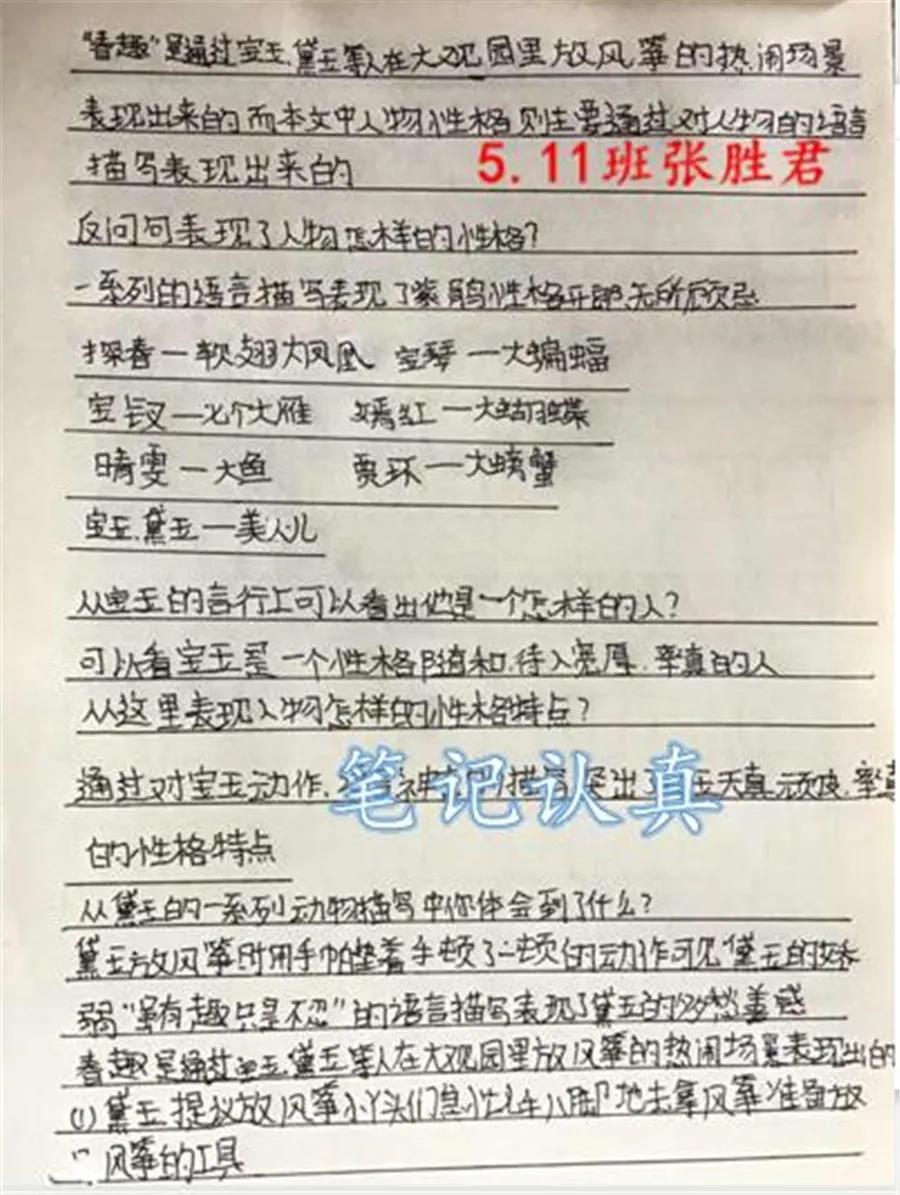 "春趣"是通过宝玉、黛玉等人在大观园里放风筝的热闹场景
表现出来的而本文中人物性格则主要通过对人物的语言
描写表现出来的
5.11班张胜君
反问句表现了人物怎样的性格?
一系列的语言描写表现了紫鹃性格开朗、无所顾忌
探春一软翅大凤凰 宝琴一大蝙蝠
宝钗一七个大雁 嫣红一大蝴蝶
晴雯一大鱼 贾环一大螃蟹
宝玉、黛玉一美人儿
从宝玉的言行上可以看出他是一个怎样的人?
可以看宝玉是一个性格随和、待人宽厚、率真的人
从这里表现人物怎样的性格特点?
通过对宝玉动作、描写突出玉天真、顽皮、率真
笔记认真
的性格特点
从黛玉的一系列动物描写中你体会到了什么?
黛玉放风筝时用手帕垫着手顿了一顿的动作可见黛玉的娇
弱"虽有趣只是不忍"的语言描写表现了黛玉的多愁善感
春趣是通过宝玉、黛玉等人在大观园里放风筝的热闹场景表现出的
(1)黛玉提议放风筝小丫头们七手八脚地去拿风筝准备放
风筝的工具